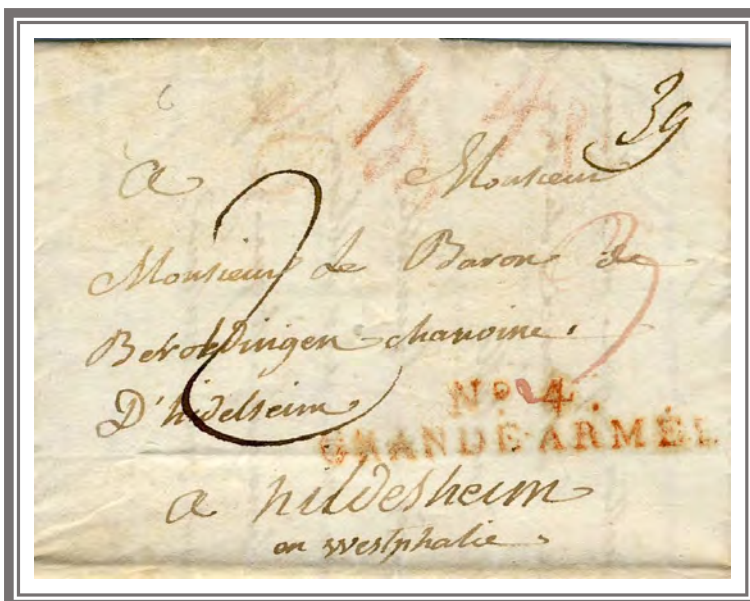 39
a Monsieur
Monsieur Le Baron de
Beroldingen chanoine.
D'hidelseim
No. 4.
GRANDE-ARMÉE
a hildesheim
en Westphalie.